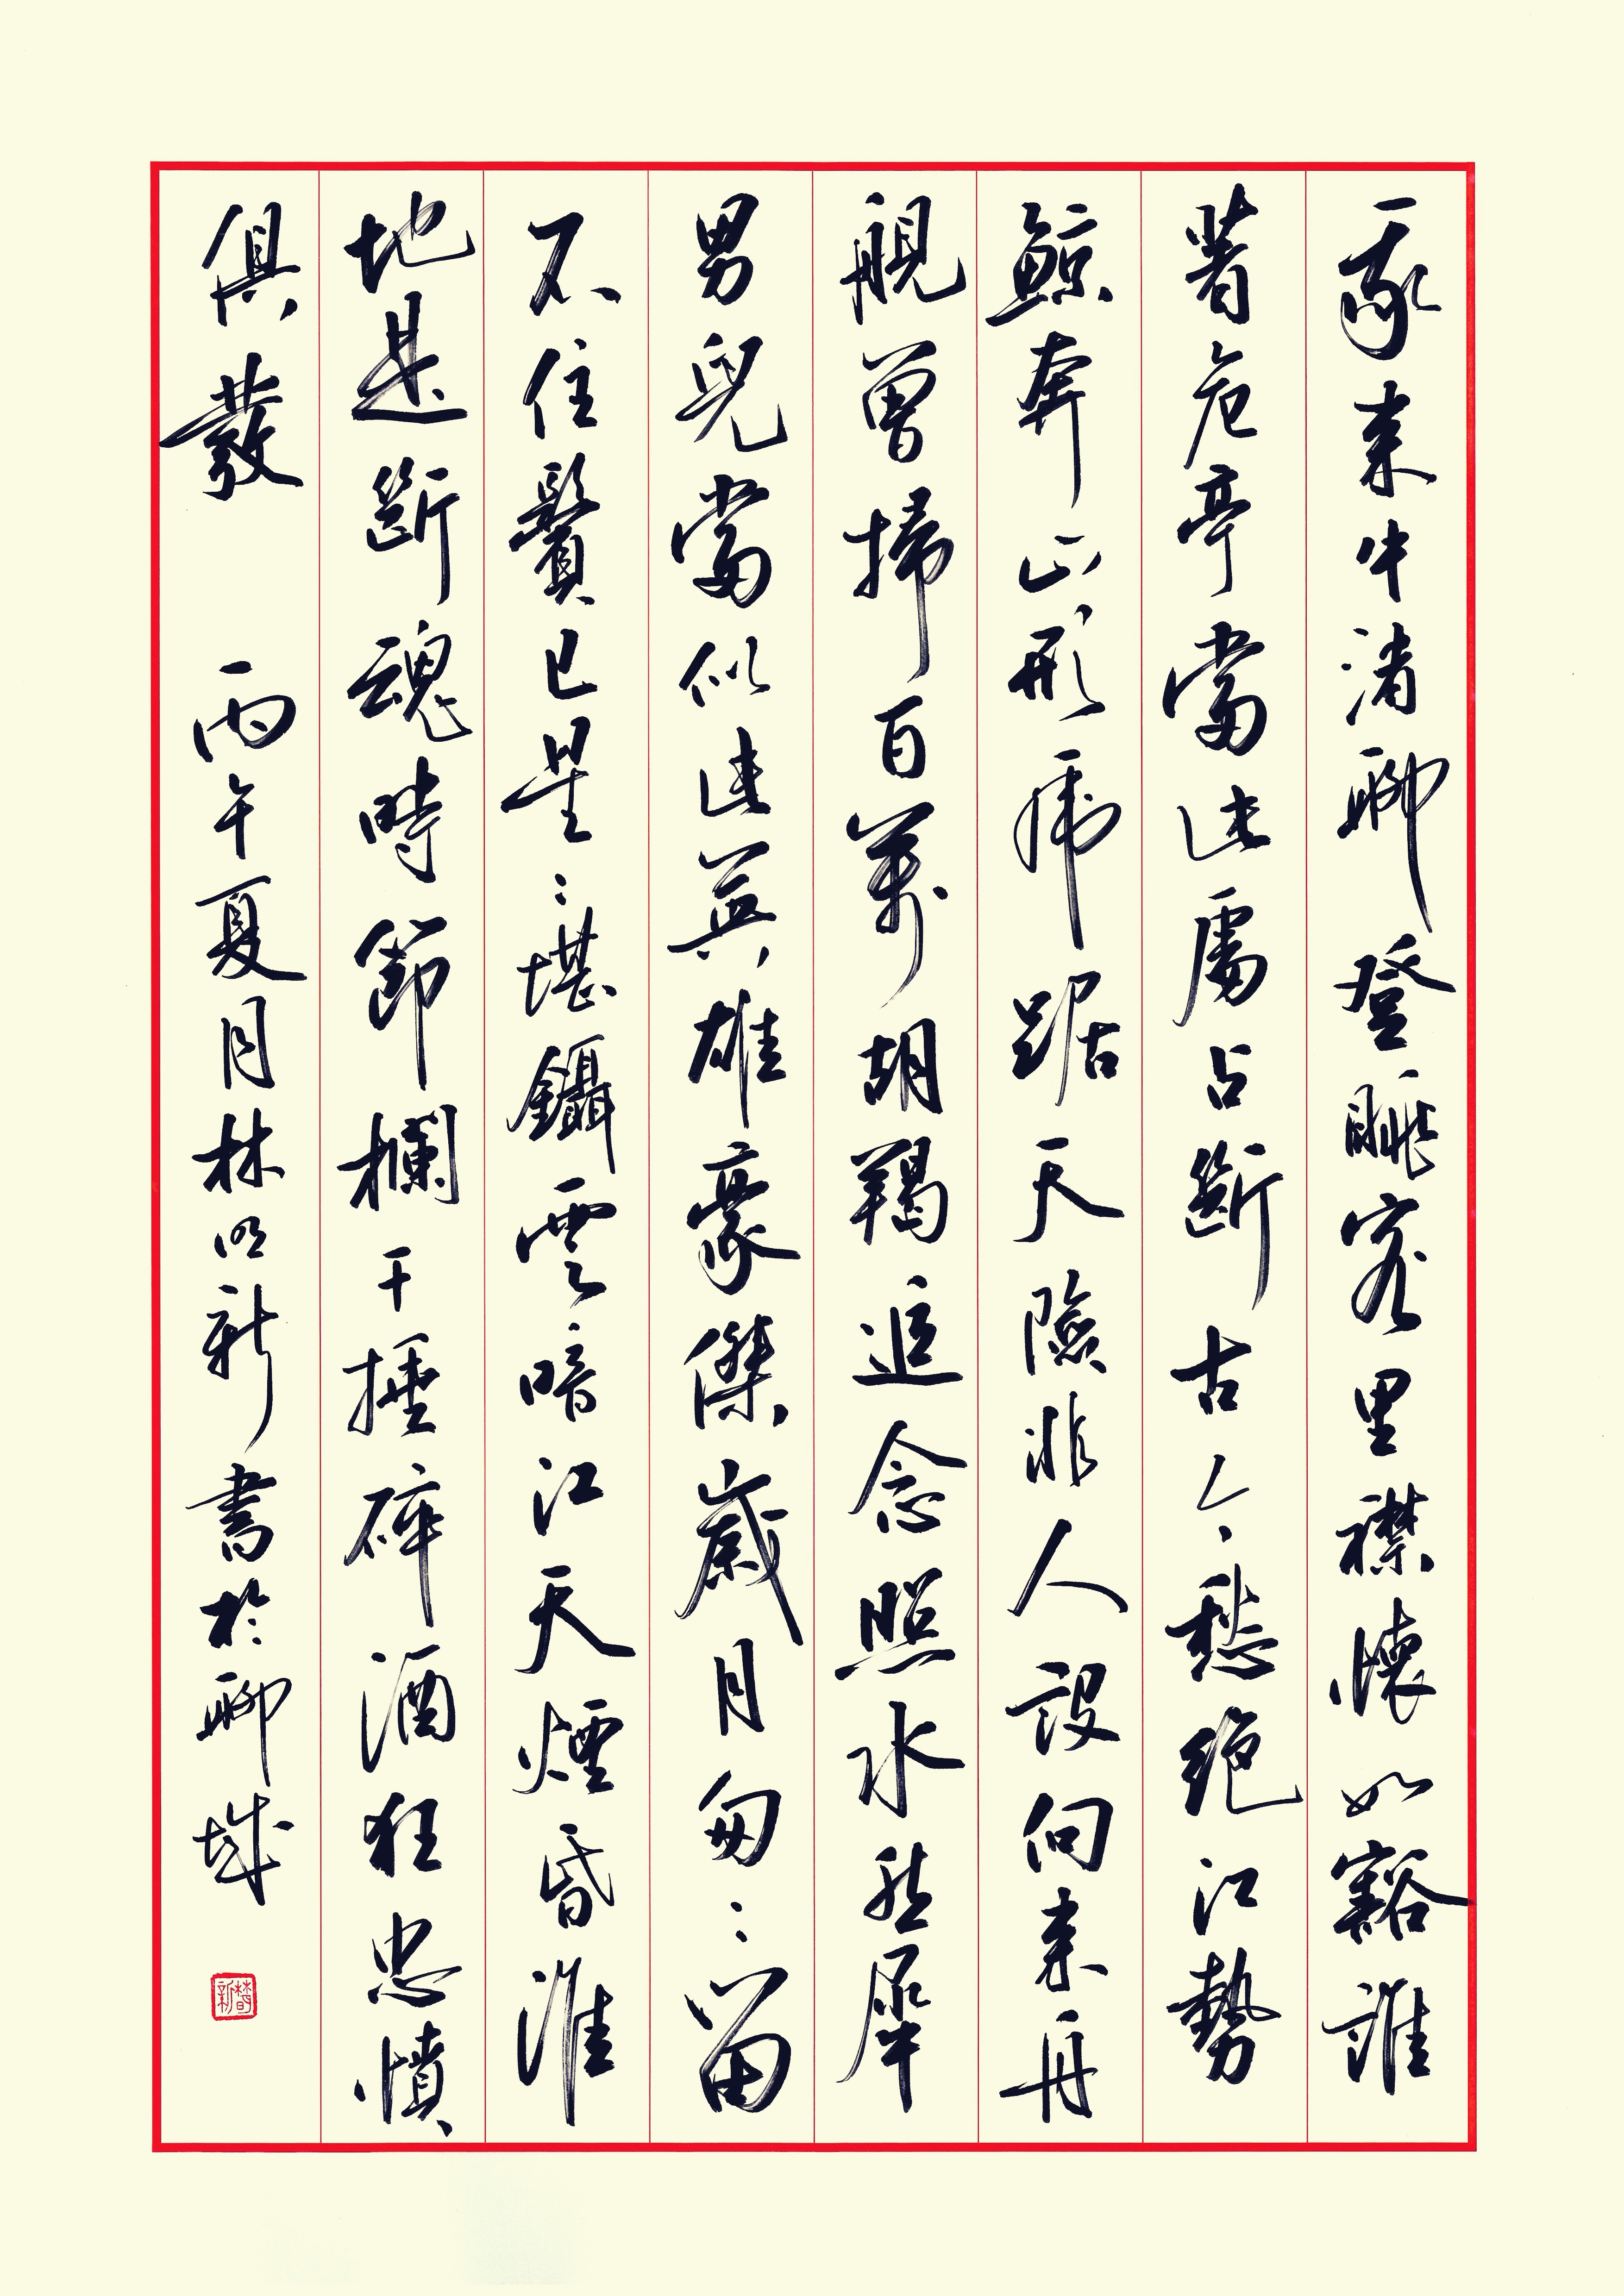 我來牛渚聊登眺客里襟懷如豁誰
著危亭當此處占斷古今愁絶江勢
鯨奔山形虎踞天險非人設向來舟
艦曾掃百萬胡羯追念照水然犀
男兒當似此英雄豪傑歲月匆〻留
不住鬢已星〻堪鑷雲暗江天煙昏淮
地是斷魂時節欄干捶碎酒狂忠憤
俱發 丙午夏月林明新書於聊城